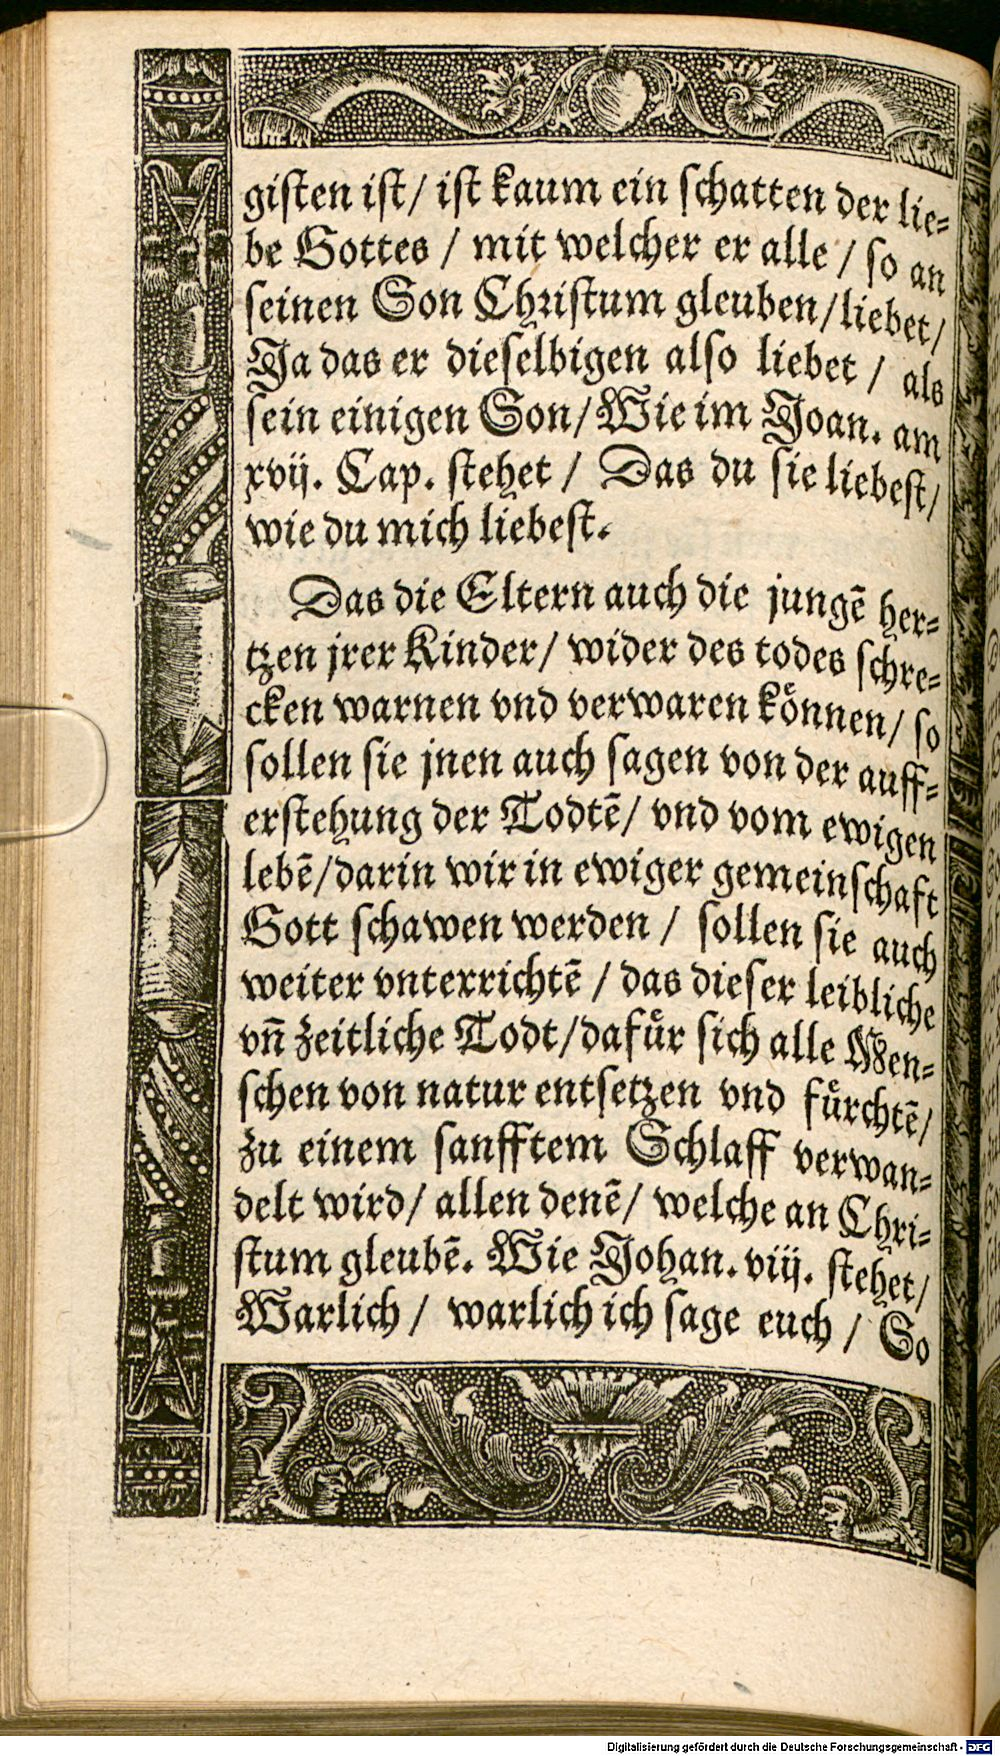 gisten ist/ ist kaum ein schatten der lie=
be Gottes / mit welcher er alle / so an
seinen Son Christum gleuben/liebet/
Ja das er dieselbigen also liebet / als
sein einigen Son/ Wie im Joan. am
xvij. Cap. stehet / Das du sie liebest/
wie du mich liebest.
Das die Eltern auch die jungē her=
tzen jrer Kinder/ wider des todes schre=
cken warnen vnd verwaren koͤnnen/ so
sollen sie jnen auch sagen von der auff=
erstehung der Todtē/ vnd vom ewigen
lebē/darin wir in ewiger gemeinschaft
Gott schawen werden / sollen sie auch
weiter vnterrichtē / das dieser leibliche
vn̄ zeitliche Todt/dafuͤr sich alle Men=
schen von natur entsetzen vnd fuͤrchtē/
zu einem sanfftem Schlaff verwan=
delt wird/ allen denē/ welche an Chri=
stum gleubē. Wie Johan. viij. stehet/
Warlich / warlich ich sage euch / So
Digitalisierung gefördert durch die Deutsche Forschungsgemeinschaft - DFG